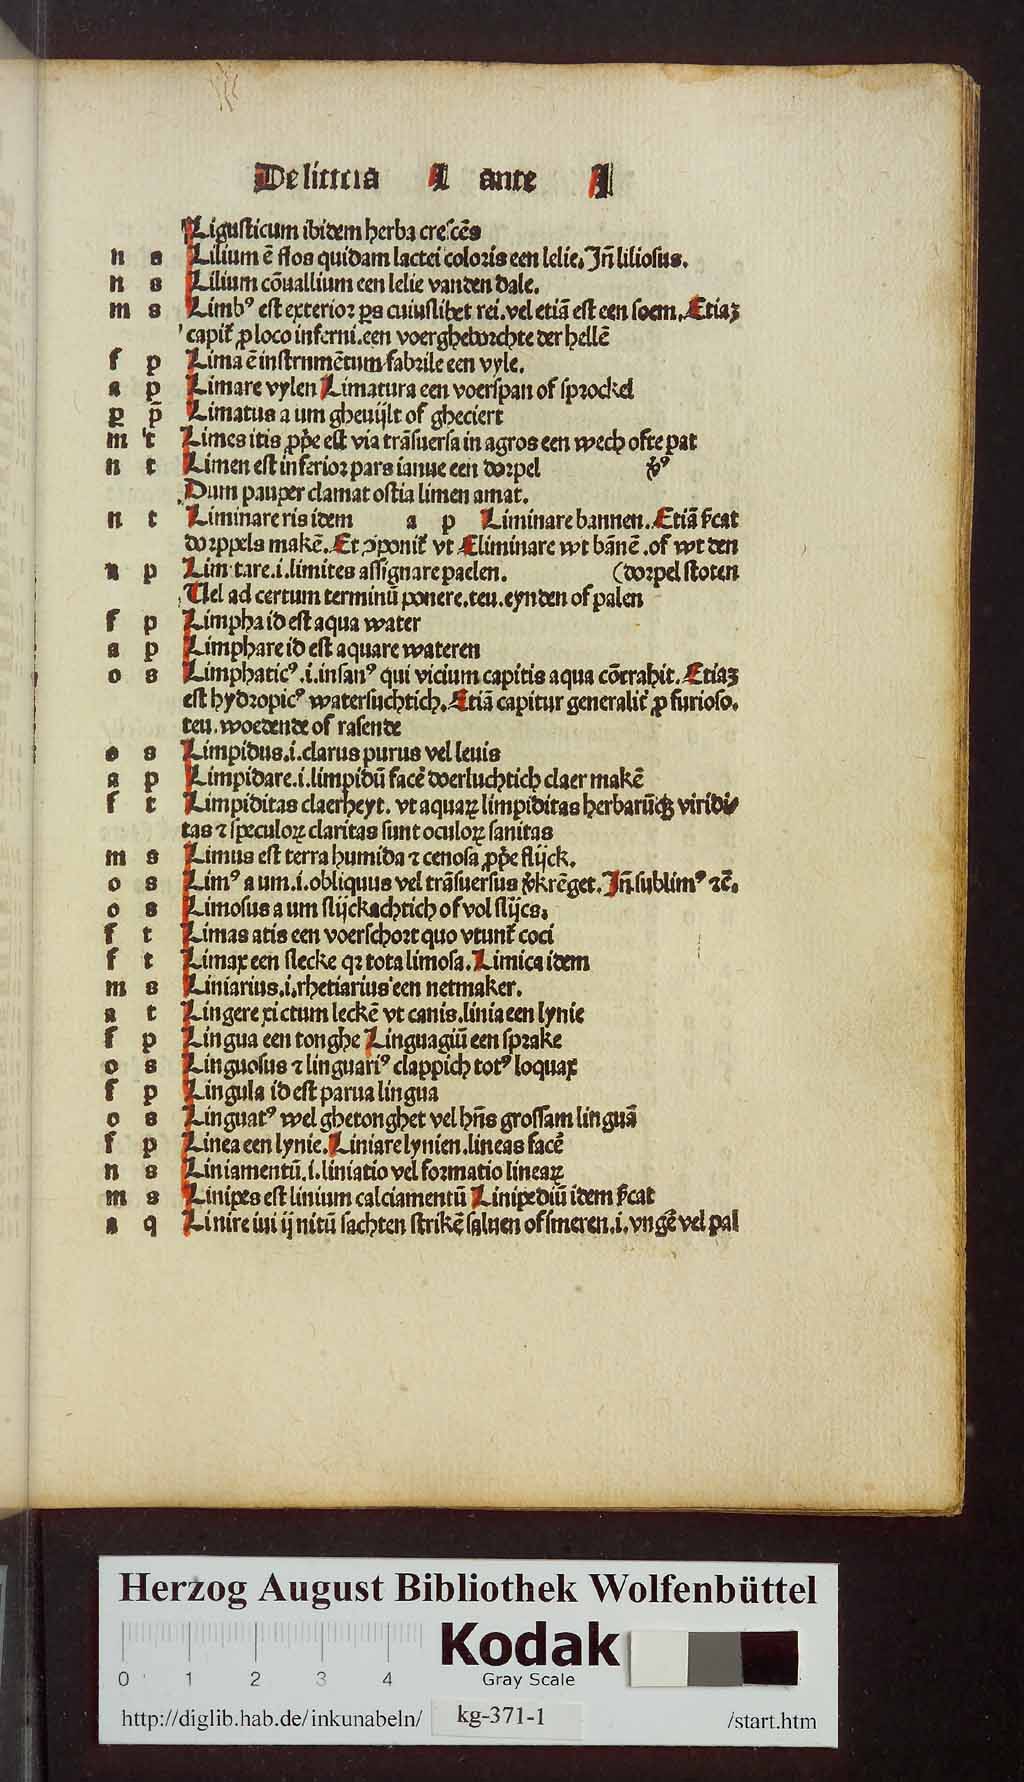 De littera L ante I
Ligusticum ibidem herba crescēs
n s Lilium ē flos quidam lactei coloris een lelie. Jn̄ liliosus.
n s Lilium cōuallium een lelie vanden dale.
m s Limbꝰ est exterior ꝑs cuiuslibet rei. vel etiā est een soem. Etiaꝫ
capit̄ ꝓ loco inferni. een voerghebœrchte der hellē
f p Lima ē instrumētum fabrile een vyle.
a p Limare vylen Limatura een voerspan of sprockel
p p Limatus a um gheuijlt of gheciert
m t Limes itis ꝓp̄e est via trāsuersa in agros een wech ofte pat
n t Limen est inferior pars ianue een dorpel
Dum pauper clamat ostia limen amat.
n t Liminare ris idem a p Liminare bannen. Etiā
dorppels makē. Et ꝯponit̄ vt Eliminare wt bānē. of wt den
a p Limitare .i. limites assignare paelen. (dorpel stoten
Uel ad certum terminū ponere. teu. eynden of palen
f p Limpha id est aqua water
a p Limphare id est aquare wateren
o s Limphaticꝰ .i. insanꝰ qui vicium capitis aqua cōtrahit. Etiaꝫ
est hydropicꝰ watersuchtich. Etiā capitur generalit̄ ꝓ furioso.
teu. woedende of rasende
o s Limpidus .i. clarus purus vel leuis
a p Limpidare .i. limpidū facē doerluchtich claer makē
f t Limpiditas claerheyt. vt aquaꝝ limpiditas herbarūqꝫ viridi
tas ⁊ speculoꝝ claritas sunt oculoꝝ sanitas
m s Limus est terra humida ⁊ cenosa ꝓp̄e slijck.
o s Limꝰ a um .i. obliquus vel trāsuersus v̄krēget. Jn̄ sublimꝰ ⁊c̄.
o s Limosus a um slijckachtich of vol slijcs.
f t Limas atis een voerschort quo vtunt̄ coci
f t Limax een slecke qꝛ tota limosa. Limica idem
m s Liniarius .i. rhetiarius een netmaker.
a t Lingere xi ctum leckē vt canis. linia een lynie
f p Lingua een tonghe Linguagiū een sprake
o s Linguosus ⁊ linguariꝰ clappich totꝰ loquax
f p Lingula id est parua lingua
o s Linguatꝰ wel ghetonghet vel hn̄s grossam linguā
f p Linea een lynie. Liniare lynien. lineas facē
n s Liniamentū .i. liniatio vel formatio lineaꝝ
m s Linipes est linium calciamentū Linipediū idem
a q Linire iui ij nitū sachten strikē saluen of smeren .i. vngē vel pal
Herzog August Bibliothek Wolfenbüttel
0 1 2 3 4
Kodak
Gray Scale
http://diglib.hab.de/inkunabeln/ kg-371-1 /start.htm